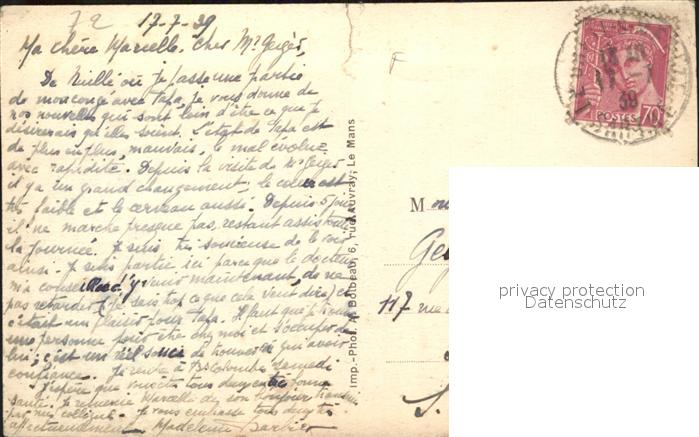 72 17-7-39
Ma chère Marcelle, cher Mr Geiger,
De Nuillé où je passe une partie
de mon congé avec Papa, je vous donne de
nos nouvelles qui sont loin d'être ce que je
désirerais qu'elles soient. L'état de Papa est
de plus en plus, mauvais, le mal évolue
avec rapidité. Depuis la visite de Mr Geiger
il y a un grand changement, le cœur est
très faible et le cerveau aussi. Depuis 5 jours
il ne marche presque pas, restant assis toute
la journée. Je suis très soucieuse de le voir
ainsi. Je suis partie ici parce que le docteur
m'a conseillée d'y venir maintenant, de ne
pas retarder (je sens trop ce que cela veut dire) et
c'était un plaisir pour Papa. Il faut que je trouve
une personne pour être chez moi et s'occuper de
lui; c'est un réel souci de trouver à qui avoir
confiance. Je rentre à Bs Colombes samedi
J'espère que vous êtes tous deux en très bonne
santé. Je remercie Marcelle de son bonjour transmis
par ma collègue. Je vous embrasse tous deux très
affectueusement Madeleine Barbier
Imp.-Phot. A. Dolbeau, 6, rue Auvray, Le Mans
F
39
POSTES 70c
M
Ge
117 rue
S.
privacy protection
Datenschutz